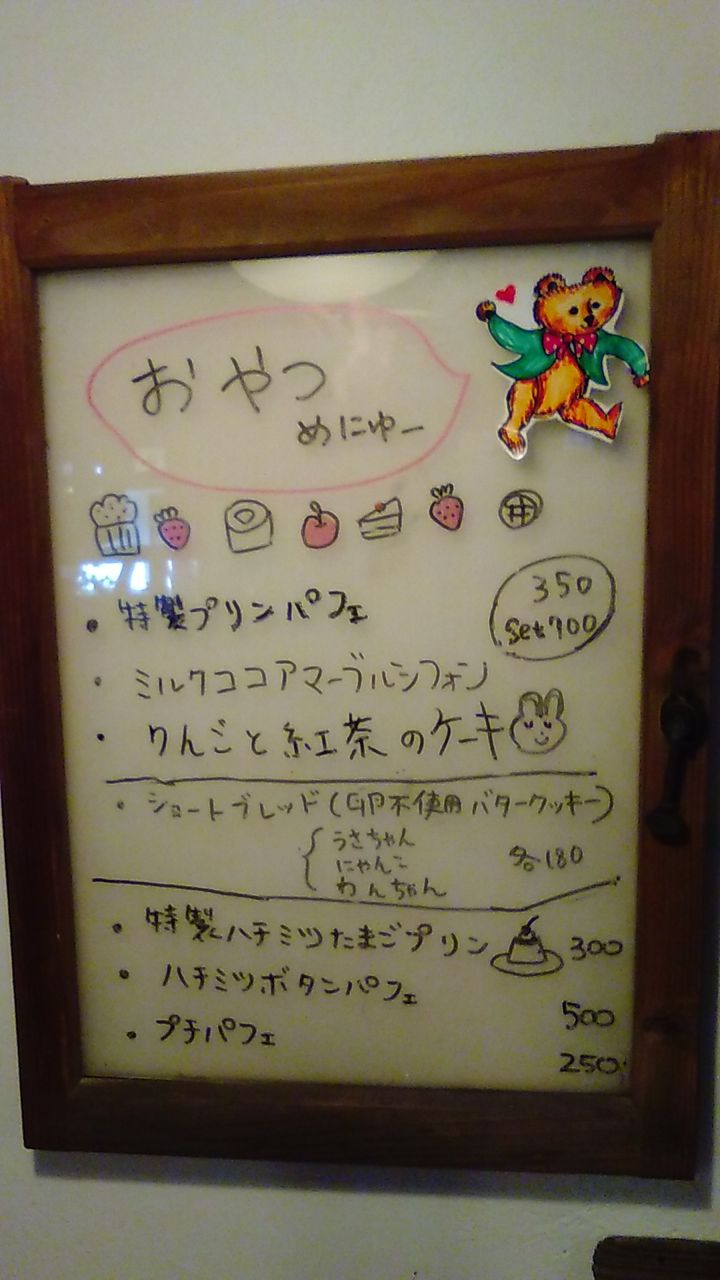 おやつ
めにゅー
350
set 700
・特製プリンパフェ
・ミルクココアマーブルシフォン
・りんごと紅茶のケーキ
・ショートブレッド(卵不使用バタークッキー)
うさちゃん
にゃんこ
わんちゃん
各180
・特製ハチミツたまごプリン 300
・ハチミツボタンパフェ 500
・プチパフェ 250